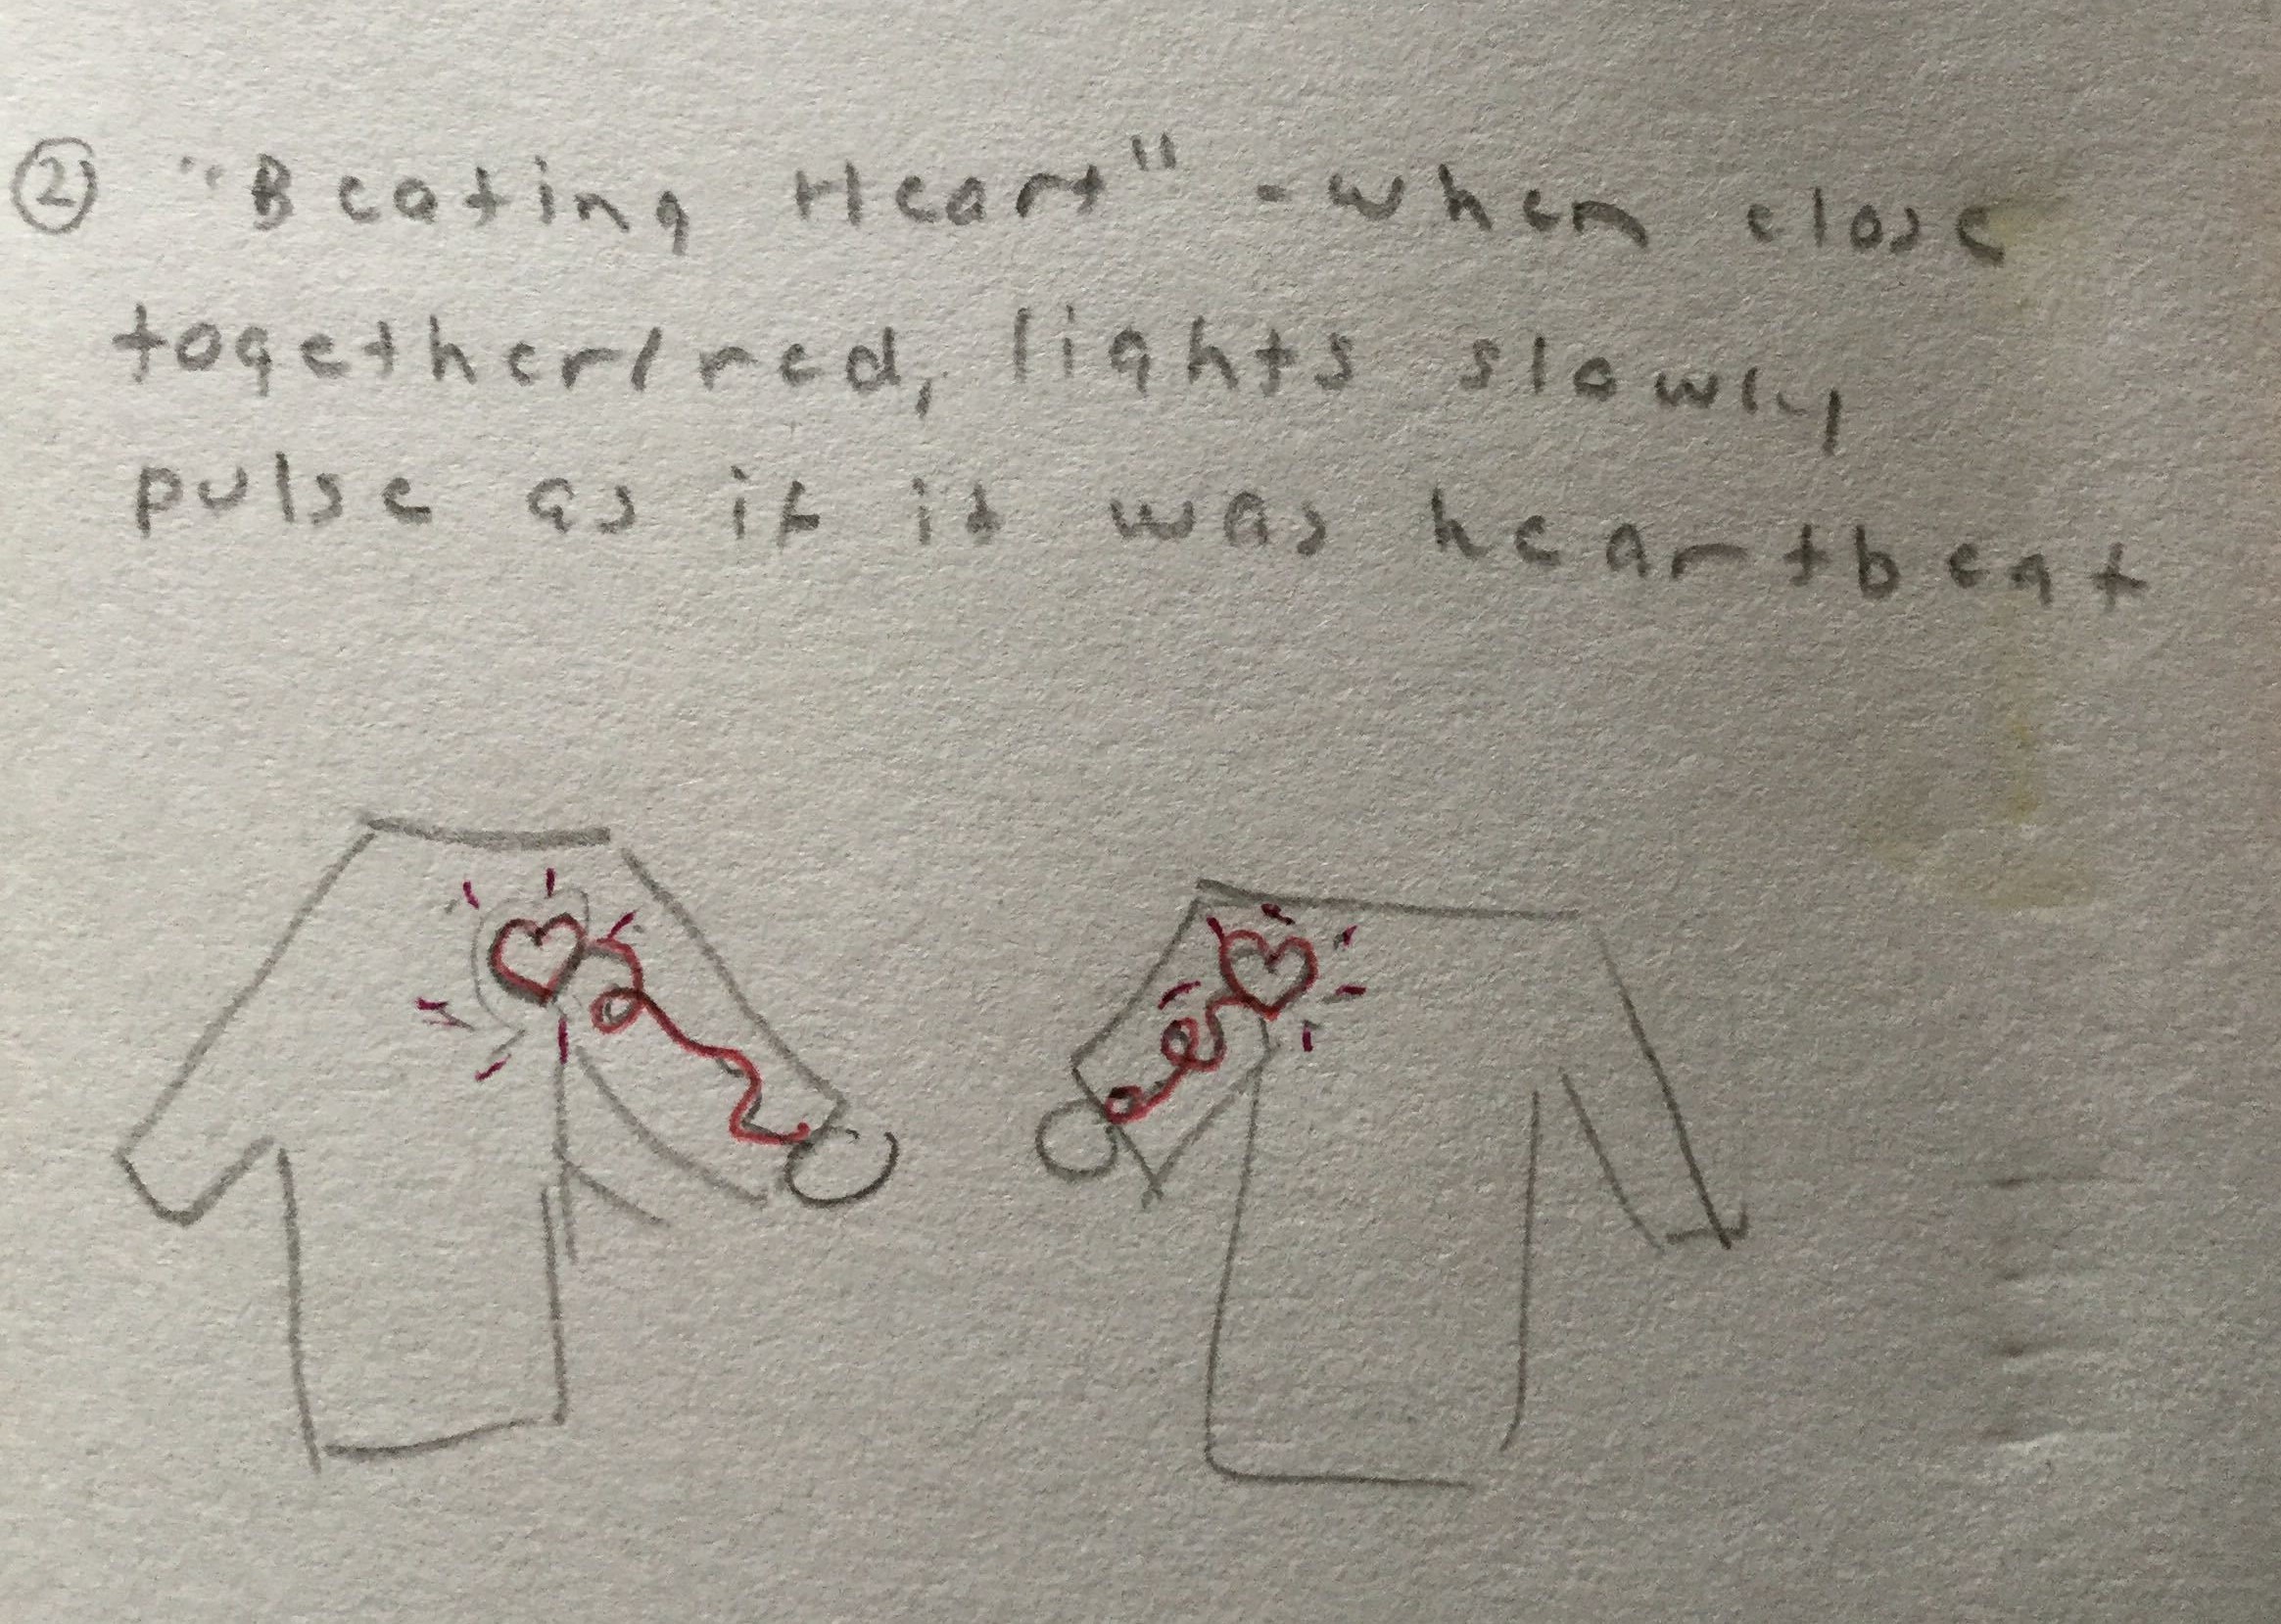 ② "Beating Heart" - when close
together/red, lights slowly
pulse as if it was heartbeat